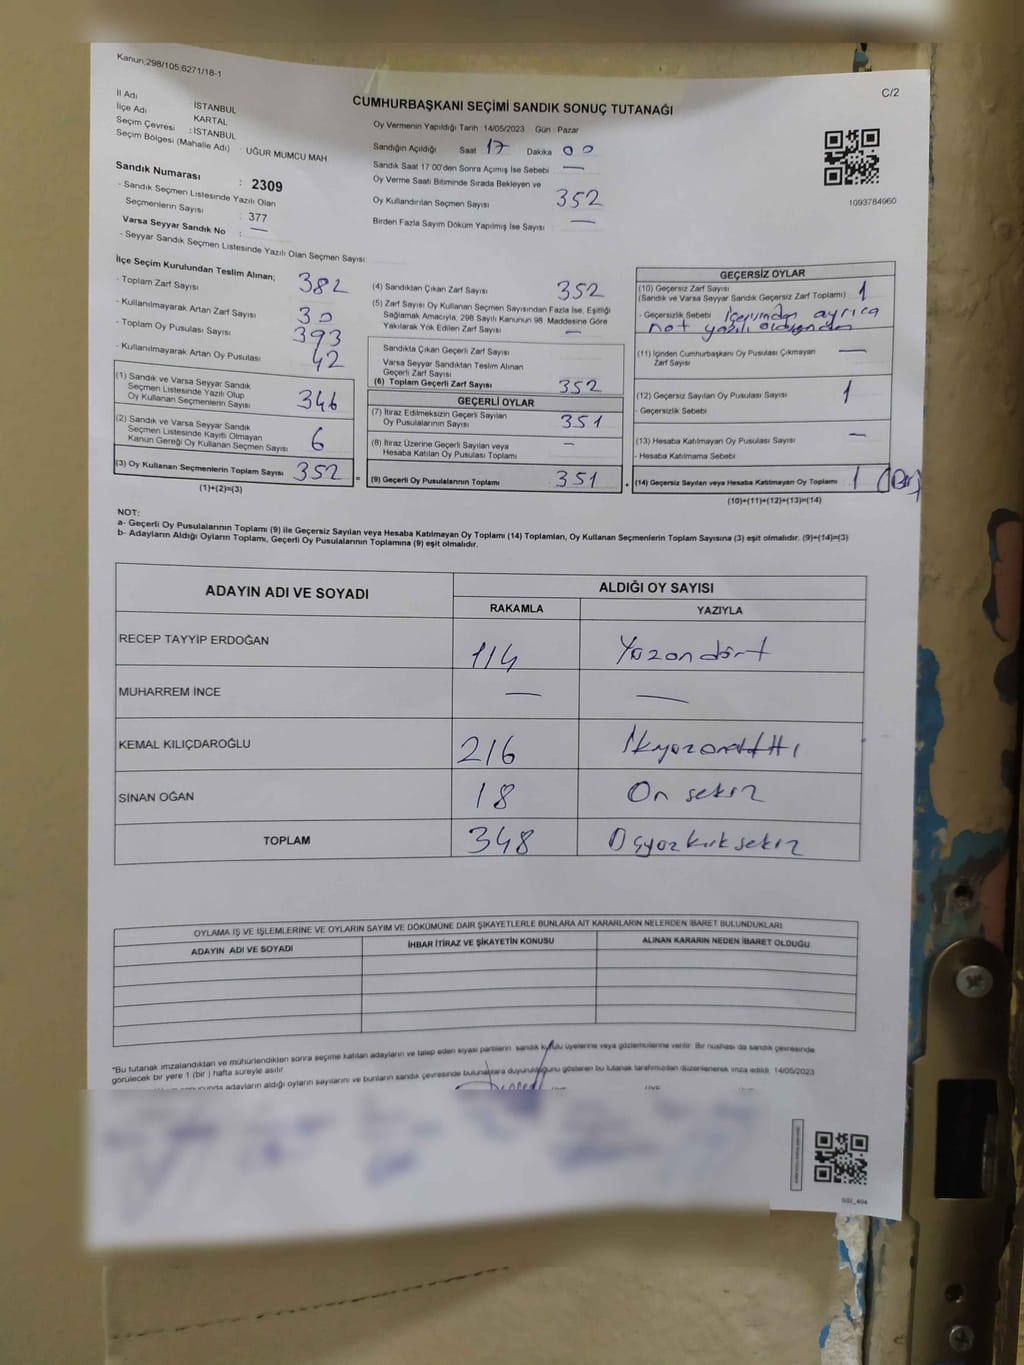 Kanun;298/105,6271/18-1
C/2
CUMHURBAŞKANI SEÇİMİ SANDIK SONUÇ TUTANAĞI
İl Adı İSTANBUL
İlçe Adı KARTAL
Seçim Çevresi : İSTANBUL
Seçim Bölgesi (Mahalle Adı) : UĞUR MUMCU MAH
Sandık Numarası : 2309
- Sandık Seçmen Listesinde Yazılı Olan
Seçmenlerin Sayısı : 377
Varsa Seyyar Sandık No : —
- Seyyar Sandık Seçmen Listesinde Yazılı Olan Seçmen Sayısı
Oy Vermenin Yapıldığı Tarih 14/05/2023 Gün : Pazar
Sandığın Açıldığı Saat 17 Dakika 00
Sandık Saat 17:00'den Sonra Açılmış İse Sebebi —
Oy Verme Saati Bitiminde Sırada Bekleyen ve
Oy Kullandırılan Seçmen Sayısı 352
Birden Fazla Sayım Döküm Yapılmış İse Sayısı —
1093784960
İlçe Seçim Kurulundan Teslim Alınan;
- Toplam Zarf Sayısı 382
- Kullanılmayarak Artan Zarf Sayısı 30
- Toplam Oy Pusulası Sayısı 393
- Kullanılmayarak Artan Oy Pusulası 42
(1) Sandık ve Varsa Seyyar Sandık
Seçmen Listesinde Yazılı Olup
Oy Kullanan Seçmenlerin Sayısı 346
(2) Sandık ve Varsa Seyyar Sandık
Seçmen Listesinde Kayıtlı Olmayan
Kanun Gereği Oy Kullanan Seçmen Sayısı 6
(3) Oy Kullanan Seçmenlerin Toplam Sayısı 352 =
(1)+(2)=(3)
(4) Sandıktan Çıkan Zarf Sayısı 352
(5) Zarf Sayısı Oy Kullanan Seçmen Sayısından Fazla İse, Eşitliği
Sağlamak Amacıyla, 298 Sayılı Kanunun 98. Maddesine Göre
Yakılarak Yok Edilen Zarf Sayısı —
Sandıkta Çıkan Geçerli Zarf Sayısı
Varsa Seyyar Sandıktan Teslim Alınan
Geçerli Zarf Sayısı
(6) Toplam Geçerli Zarf Sayısı 352
GEÇERLİ OYLAR
(7) İtiraz Edilmeksizin Geçerli Sayılan
Oy Pusulalarının Sayısı 351
(8) İtiraz Üzerine Geçerli Sayılan veya
Hesaba Katılan Oy Pusulası Toplamı —
(9) Geçerli Oy Pusulalarının Toplamı 351 +
GEÇERSİZ OYLAR
(10) Geçersiz Zarf Sayısı
(Sandık ve Varsa Seyyar Sandık Geçersiz Zarf Toplamı) 1
- Geçersizlik Sebebi İçerisinden ayrıca
not yazılı olduğundan
(11) İçinden Cumhurbaşkanı Oy Pusulası Çıkmayan
Zarf Sayısı —
(12) Geçersiz Sayılan Oy Pusulası Sayısı 1
- Geçersizlik Sebebi
(13) Hesaba Katılmayan Oy Pusulası Sayısı —
- Hesaba Katılmama Sebebi
(14) Geçersiz Sayılan veya Hesaba Katılmayan Oy Toplamı 1 (Bir)
(10)+(11)+(12)+(13)=(14)
NOT:
a- Geçerli Oy Pusulalarının Toplamı (9) ile Geçersiz Sayılan veya Hesaba Katılmayan Oy Toplamı (14) Toplamları, Oy Kullanan Seçmenlerin Toplam Sayısına (3) eşit olmalıdır. (9)+(14)=(3)
b- Adayların Aldığı Oyların Toplamı, Geçerli Oy Pusulalarının Toplamına (9) eşit olmalıdır.
ADAYIN ADI VE SOYADI ALDIĞI OY SAYISI
RAKAMLA YAZIYLA
RECEP TAYYİP ERDOĞAN 114 Yüzondört
MUHARREM İNCE — —
KEMAL KILIÇDAROĞLU 216 İkiyüzonaltı
SİNAN OĞAN 18 On sekiz
TOPLAM 348 Üçyüzkırksekiz
OYLAMA İŞ VE İŞLEMLERİNE VE OYLARIN SAYIM VE DÖKÜMÜNE DAİR ŞİKAYETLERLE BUNLARA AİT KARARLARIN NELERDEN İBARET BULUNDUKLARI
ADAYIN ADI VE SOYADI İHBAR İTİRAZ VE ŞİKAYETİN KONUSU ALINAN KARARIN NEDEN İBARET OLDUĞU
*Bu tutanak imzalandıktan ve mühürlendikten sonra seçime katılan adayların ve talep eden siyasi partilerin sandık kurulu üyelerine veya gözlemcilerine verilir. Bir nüshası da sandık çevresinde
görülecek bir yere 1 (bir) hafta süreyle asılır.
sonucunda adayların aldığı oyların sayılarını ve bunların sandık çevresinde bulunanlara duyurulduğunu gösteren bu tutanak tarafımızdan düzenlenerek imza edildi. 14/05/2023